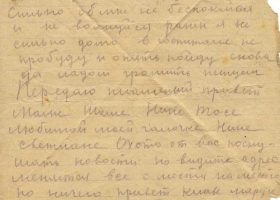 сильно обо мне не беспокойся
и не волнуйся раны я не
сильно домо в
пробуду и опять пойду снова
да гадов громить
Передаю пламеный привет
Мане Шине Нине Тосе
любимой моей галочке Нине
Светлане Охота от вас послу-
шать новости но видите адрес
меняется все с места на место
но ничего привет